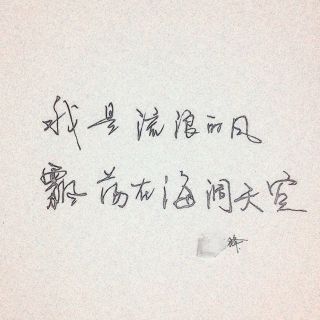 我是流浪的风
飘荡在海阔天空